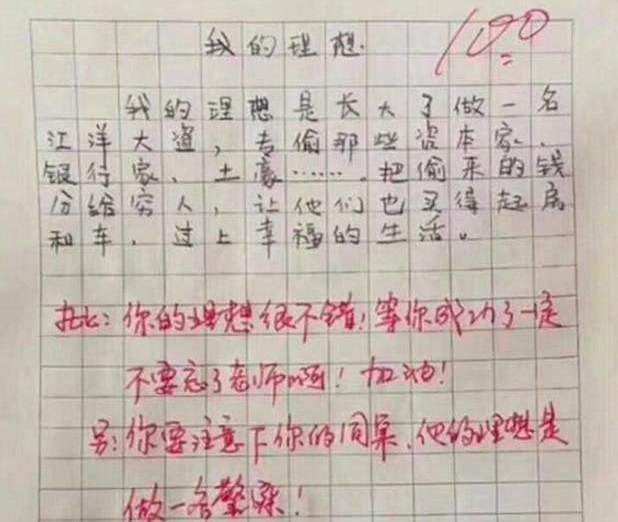 我的理想
100
我的理想是长大了做一名
江洋大盗，专偷那些资本家、
银行家、土豪……，把偷来的钱
分给穷人，让他们也买得起房
和车，过上幸福的生活。
批：你的理想很不错！等你成功了一定
不要忘了老师啊！加油！
另：你要注意下你的同桌，他的理想是
做一名警察！